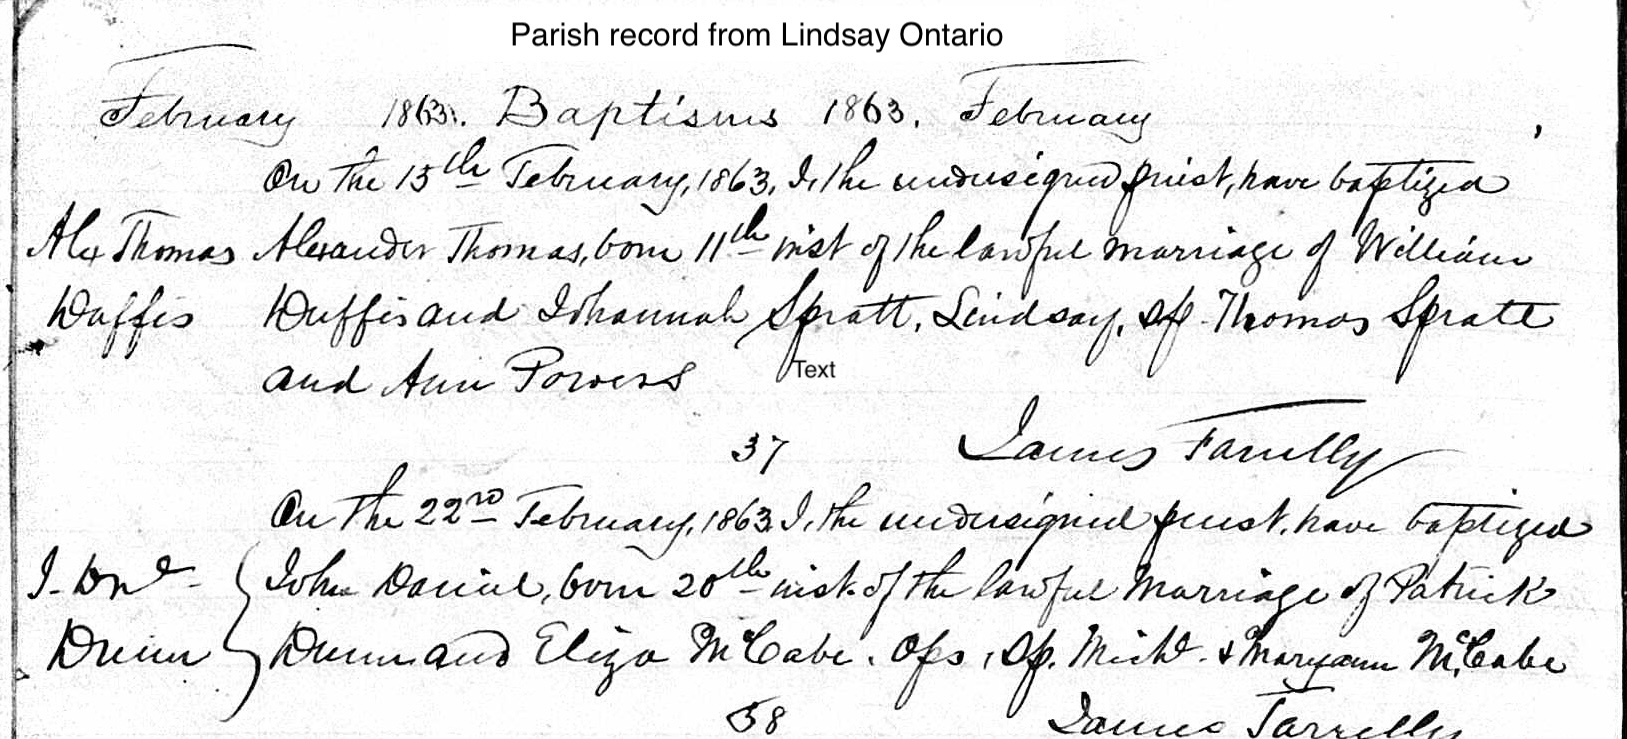 Parish record from Lindsay Ontario
February 1863. Baptisms 1863. February
On the 15th February, 1863, I, the undersigned priest, have baptized
Alex Thomas Alexander Thomas, born 11th inst of the lawful marriage of William
Duffis Duffis and Johannah Spratt, Lindsay, Sp. Thomas Spratt
and Ann Powers
Text
37 James Farrelly
On the 22nd February, 1863 I, the undersigned priest, have baptized
J. Dnl John Daniel, born 20th inst. of the lawful Marriage of Patrick
Dunn Dunn and Eliza McCabe. Ops, Sp. Michl. & Maryann McCabe
38 James Farrelly